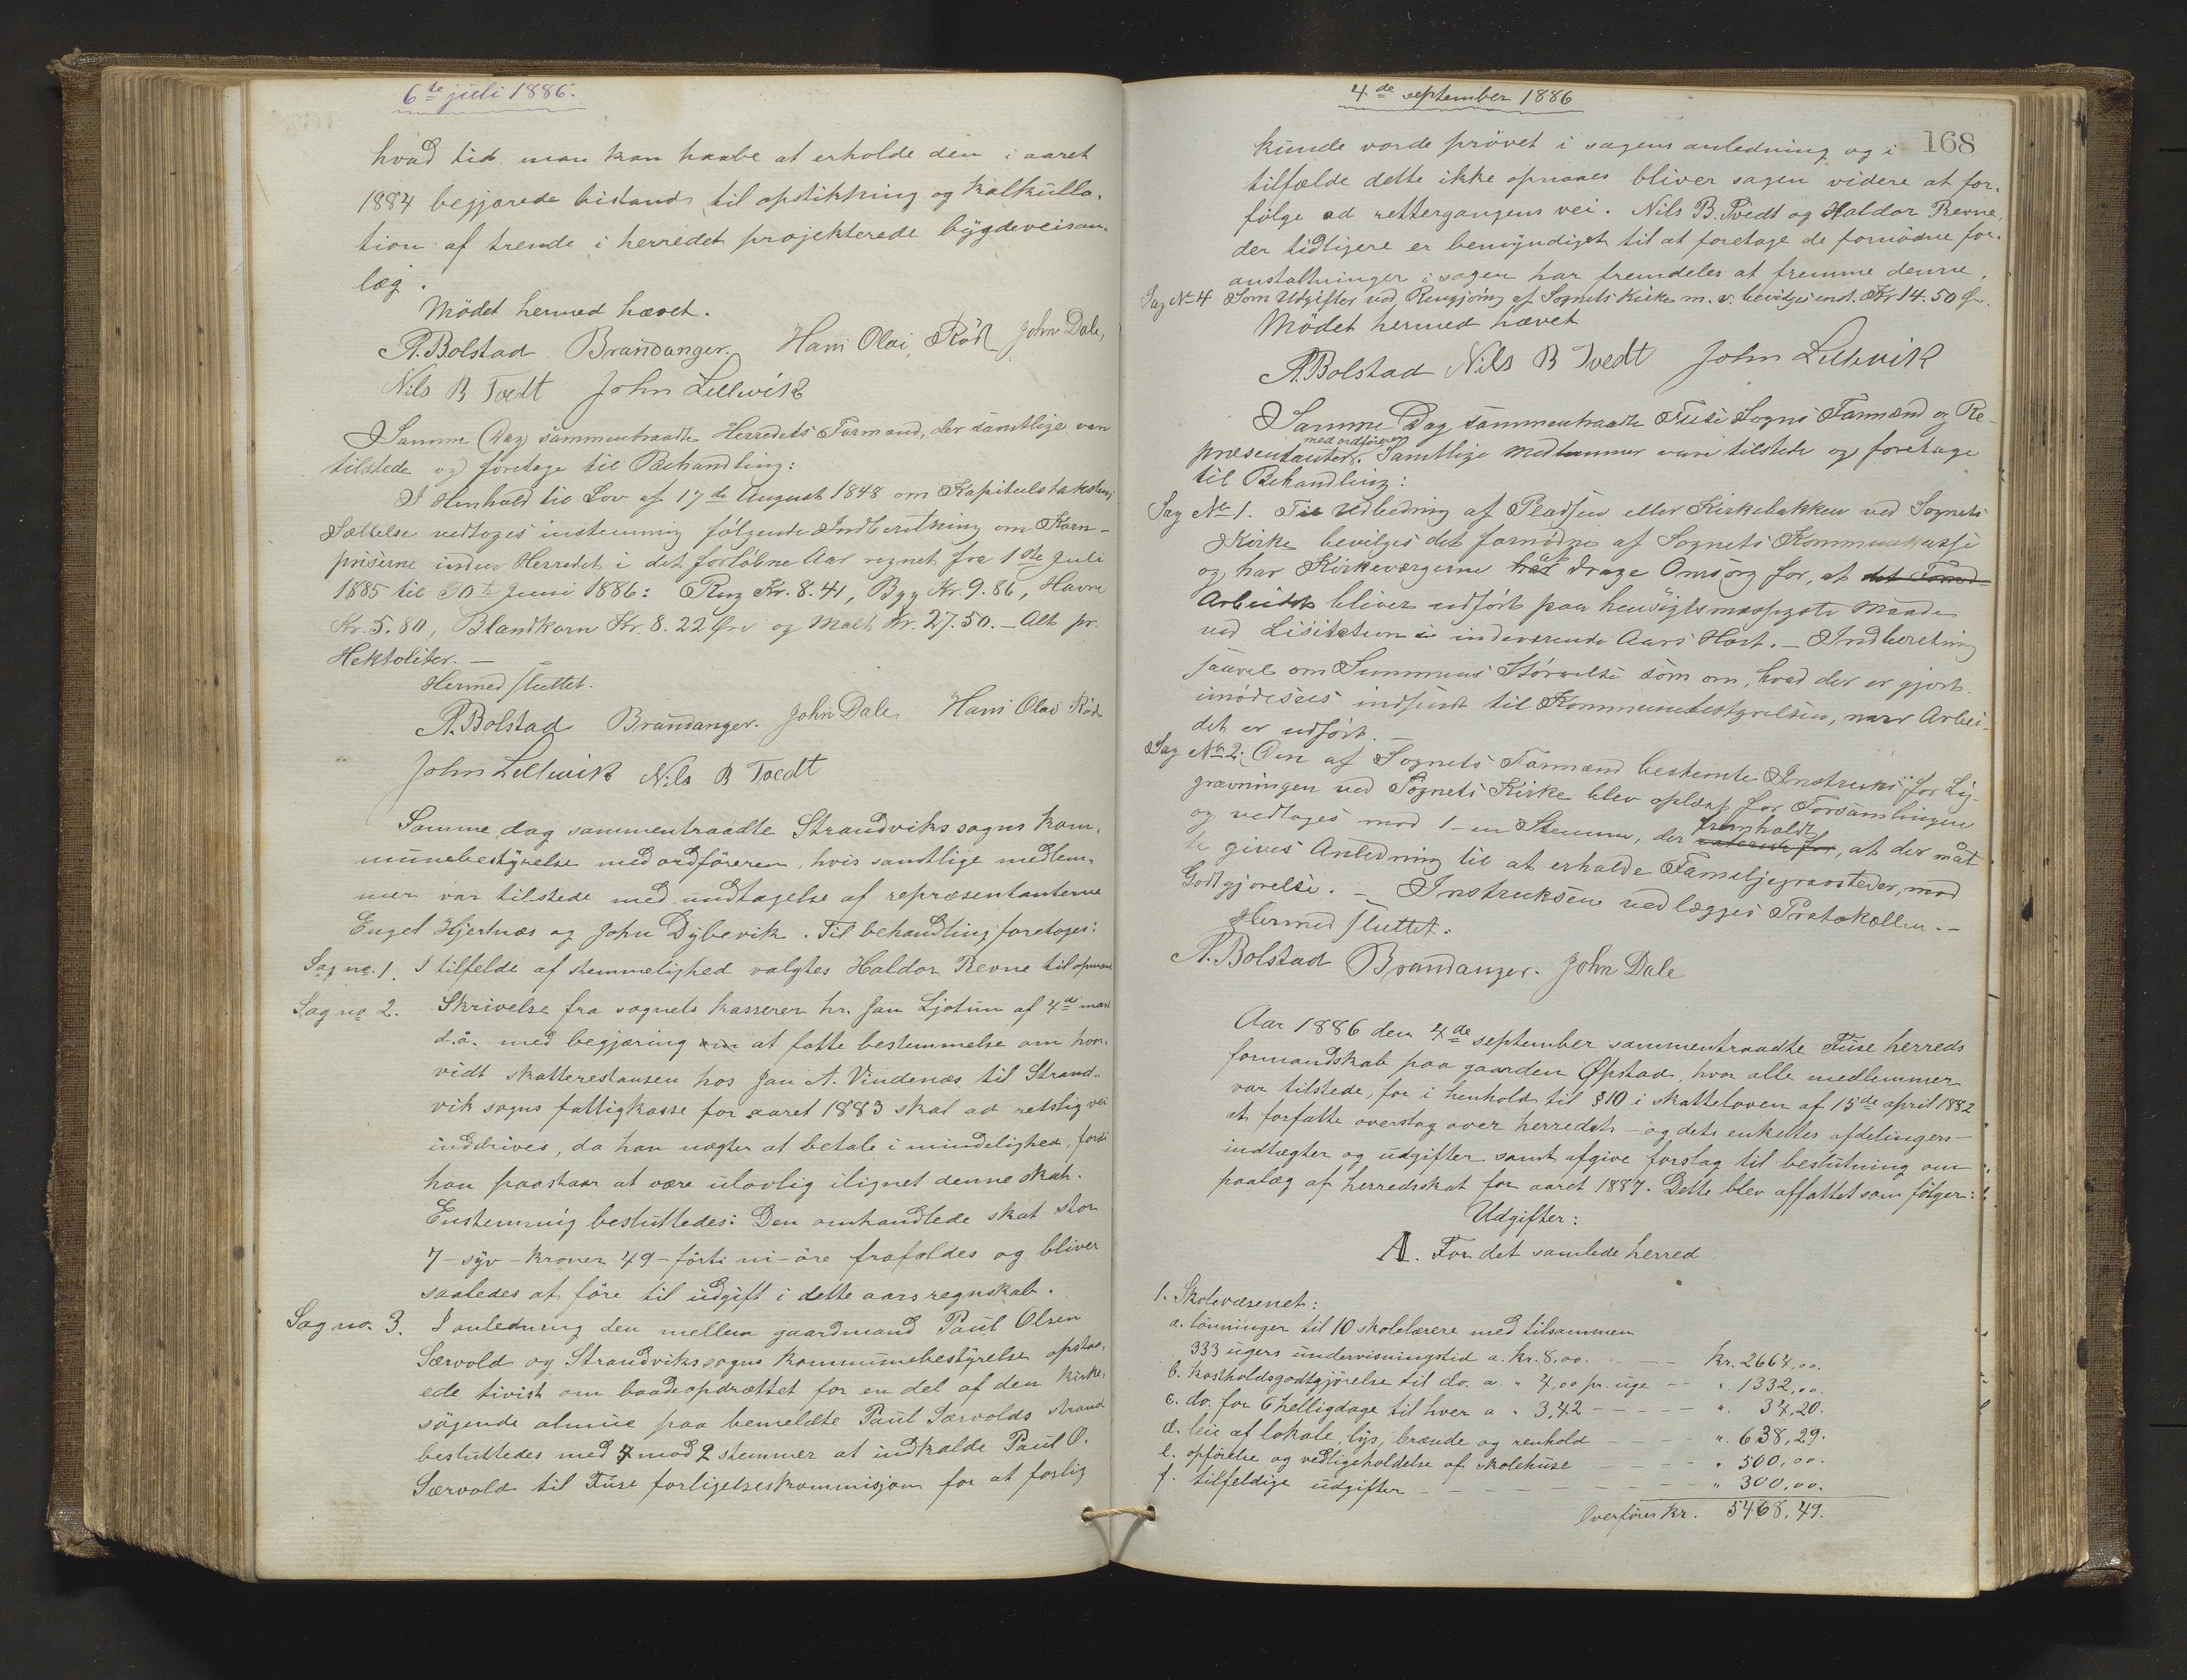 6te juli 1886.
hvad tid man kan haabe at erholde den i aaret
1884 begjærede bistand til opstikning og kalkulla-
tion af trende i herredet projekterede bygdeveisan-
læg.
Mödet hermed hævet.
A. Bolstad Brandanger. Hans Olai Röd John Dale,
Nils B Tvedt John Lillevik
Samme Dag sammentraadte Herredets Formænd, der samtlige vare
tilstede og foretoge til Behandling:
I Henhold til Lov af 17de August 1848 om Kapitulstakstens
Sættelse vedtoges instemmig følgende Indberetning om Korn-
priserne inden Herredet i det forløbne Aar regnet fra 1ste Juli
1885 til 30te Juni 1886: Rug Kr. 8.41, Byg Kr. 9.86, Havre
Kr. 5.80, Blandkorn Kr. 8.22 Øre og Malt Kr. 27.50. – Alt pr.
Hektoliter. –
Hermed sluttet.
A. Bolstad Brandanger. John Dale Hans Olai Röd
John Lillevik Nils B Tvedt
Samme dag sammentraadte Strandviks sogns kom-
munebestyrelse med ordföreren, hvis samtlige medlem-
mer var tilstede med undtagelse af repræsentanterne
Engel Hjertnæs og John Dybevik. Til behandling foretoges:
Sag no. 1. I tilfelde af stemmelighed valgtes Haldor Revne til opmand
Sag no 2. Skrivelse fra sognets kasserer hr. Jan Ljotun af 4de mai
d.å. med begjæring om at fatte bestemmelse om hvor-
vidt skatterestansen hos Jan A. Vindenæs til Strand-
vik sogns fattigkasse for aaret 1883 skal ad retslig vei
inddrives, da han nægter at betale i mindelighed, fordi
han paastaar at være ulovlig ilignet denne skat.
Enstemmig besluttedes: Den omhandlede skat stor
7 – syv – kroner 49 – förti ni – öre frafaldes og bliver
saaledes at före til udgift i dette aars regnskab.
Sag no. 3. I anledning den mellem gaardmand Paul Olsen
Særvold og Strandviks sogns kommunebestyrelse opstaa-
ede tivist om baadeopdrættet for en del af den kirke-
sögende almue paa bemeldte Paul Særvolds strand
besluttedes med 7 mod 2 stemmer at indkalde Paul O.
Særvold til Fuse forligelseskommisjon for at forlig
4de september 1886
168
kunde vorde prövet i sagens anledning og i
tilfælde dette ikke opnaaes bliver sagen videre at for-
fölge ad rettergangens vei. Nils B. Tvedt og Haldor Revne,
der tidligere er bemyndiget til at foretage de fornödne for-
anstaltninger i sagen har fremdeles at fremme denne.
Sag No 4 Som Udgifter ved Rengjöring af Sognets Kirke m. v. bevilges enst. Kr 14.50 Ør.
Mödet hermed hævet
A. Bolstad Nils B Tvedt John Lillevik
Samme Dag sammentraadte Fuse Sogns Formænd og Re-
med ordfører
præsentanter. Samtlige Medlemmer vare tilstede og foretoge
til Behandling:
Sag No 1. Til Udbedring af Pladsen eller Kirkebakken ved Sognets
Kirke bevilges det fornødne af Sognets Kommunekasse
og har Kirkeværgerne har at drage Omsorg for, at det
Arbeidet bliver udført paa hensigtsmæssigste Maade
ved Lisitation i indeværende Aars Høst. – Indberetning
saavel om Summens Størrelse som om, hvad der er gjort.
imødesees indsendt til Kommunebestyrelsen, naar Arbei-
det er udført. –
Sag No 2. Den af Sognets Formænd bestemte Instruks for Lig-
gravningen ved Sognets Kirke blev oplæst for Forsamlingen
og vedtoges mod 1 – en Stemme, der fremholdt, at der måt
te gives Anledning til at erholde Familjegravsteder, mod
Godtgjørelse. – Instruksen vedlægges Protokollen. –
Hermed sluttet.
A. Bolstad Brandanger. John Dale
Aar 1886 den 4de september sammentraadte Fuse herreds
formandskab paa gaarden Øpstad, hvor alle medlemmer
var tilstede, for i henhold til § 10 i skatteloven af 15de april 1882
at forfatte overslag over herredets – og dets enkeltes afdelingers –
indtægter og udgifter samt afgive forslag til beslutning om
paalæg af herredsskat for aaret 1887. Dette blev affattet som fölger:
Udgifter:
A. For det samlede herred
1. Skolevæsenet:
a. lönninger til 10 skolelærere med tilsammen
333 ugers undervisningstid a. kr. 8,00. – – kr. 2664,00.
b. kostholdsgodtgjörelse til do. a " 4,00 pr. uge – – " 1332,00.
c. do. for 6 helligdage til hver a " 3,42 – – – – – " 34,20.
d. leie af lokale, lys, brænde og renhold – – – " 638,29.
e. opförelse og vedligeholdelse af skolehuse – – – – " 500,00.
f. tilfeldige udgifter – – – – – – – – – " 300,00.
Overföres kr. 5468,49.